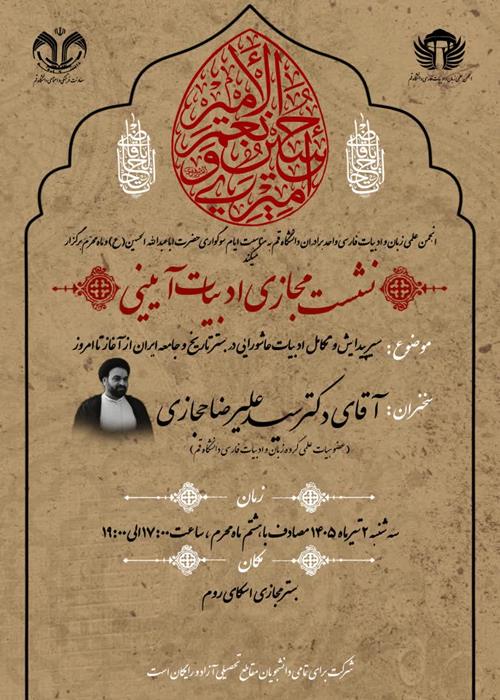 معاونت فرهنگی و اجتماعی دانشگاه قم
انجمن علمی زبان و ادبیات فارسی دانشگاه قم
امیری حسین و نعم الأمیر
انجمن علمی زبان و ادبیات فارسی واحد برادران دانشگاه قم به مناسبت ایام سوگواری حضرت اباعبدالله الحسین (ع) و ماه محرم برگزار
میکند
نشست مجازی ادبیات آیینی
موضوع: سیر پیدایش و تکامل ادبیات عاشورایی در بستر تاریخ و جامعه ایران از آغاز تا امروز
سخنران: آقای دکتر سید علیرضا حجازی
(عضو هیات علمی گروه زبان و ادبیات فارسی دانشگاه قم)
زمان
سه شنبه ۲ تیر ماه ۱۴۰۵ مصادف با هشتم ماه محرم، ساعت ۱۷:۰۰ الی ۱۹:۰۰
مکان
بستر مجازی اسکای روم
شرکت برای تمامی دانشجویان مقاطع تحصیلی آزاد و رایگان است